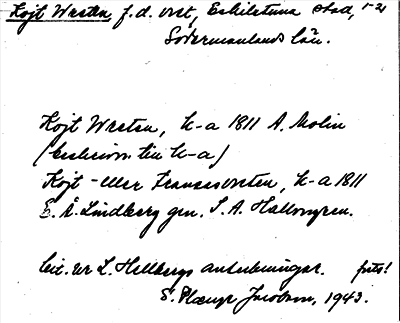 Kojt Wreten f.d. vret, Eskilstuna stad,
Södermanlands län.
Kojt Wreten, k-a 1811 A. Molin
(beskrivn. till k-a)
Kojt- eller Fransosvreten, k-a 1811
E. Å. Lindberg gm. S. A. Hallongren.
Cit. ur L. Hellbergs anteckningar. forts!
S. Plænge Jacobson, 1943.